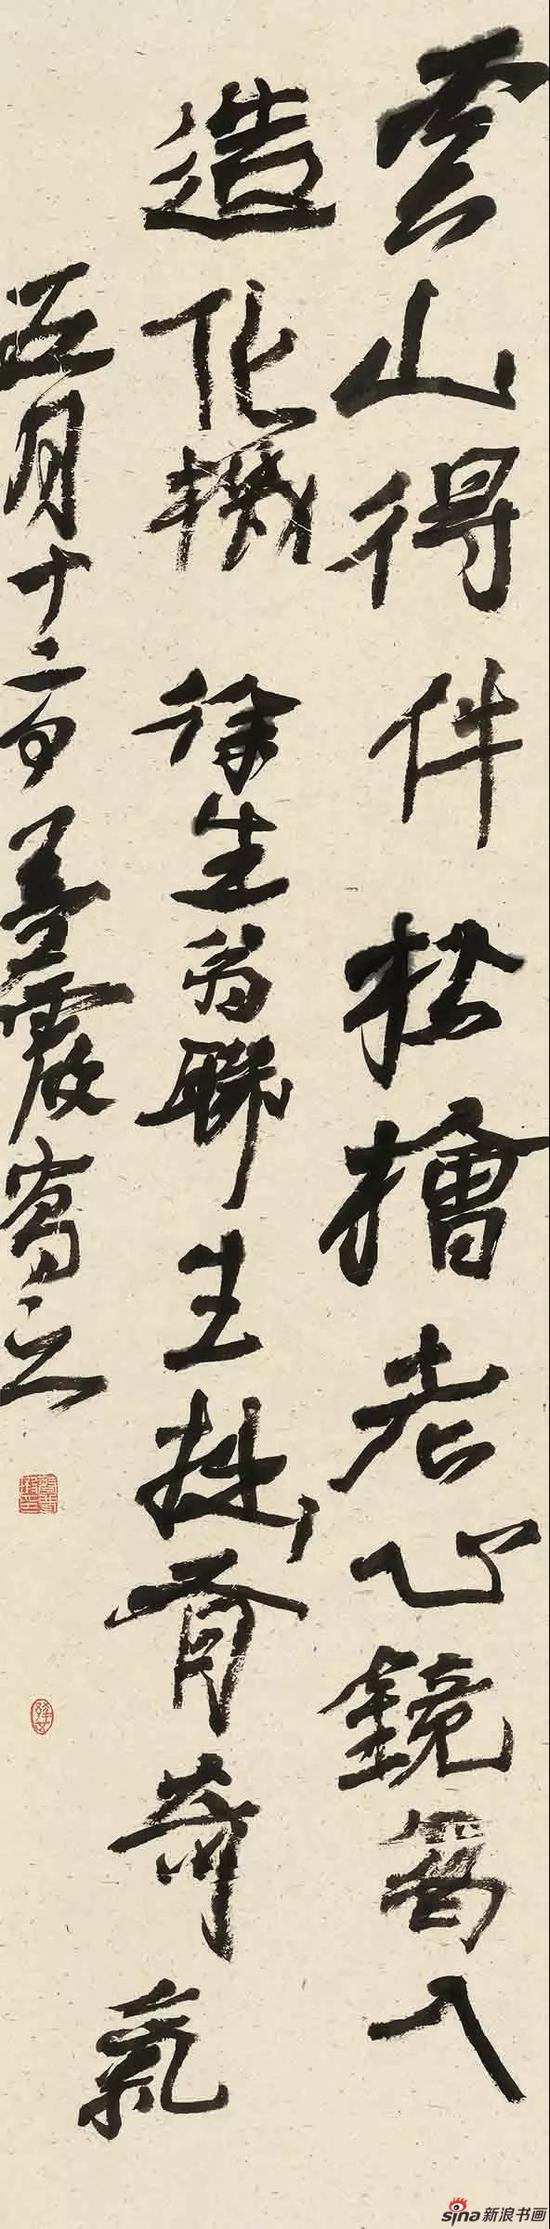 雲山得伴松檜老心鏡寫入
造化機 徐生翁聯生拙有奇氣
五月十二日寫之
sina新浪书画